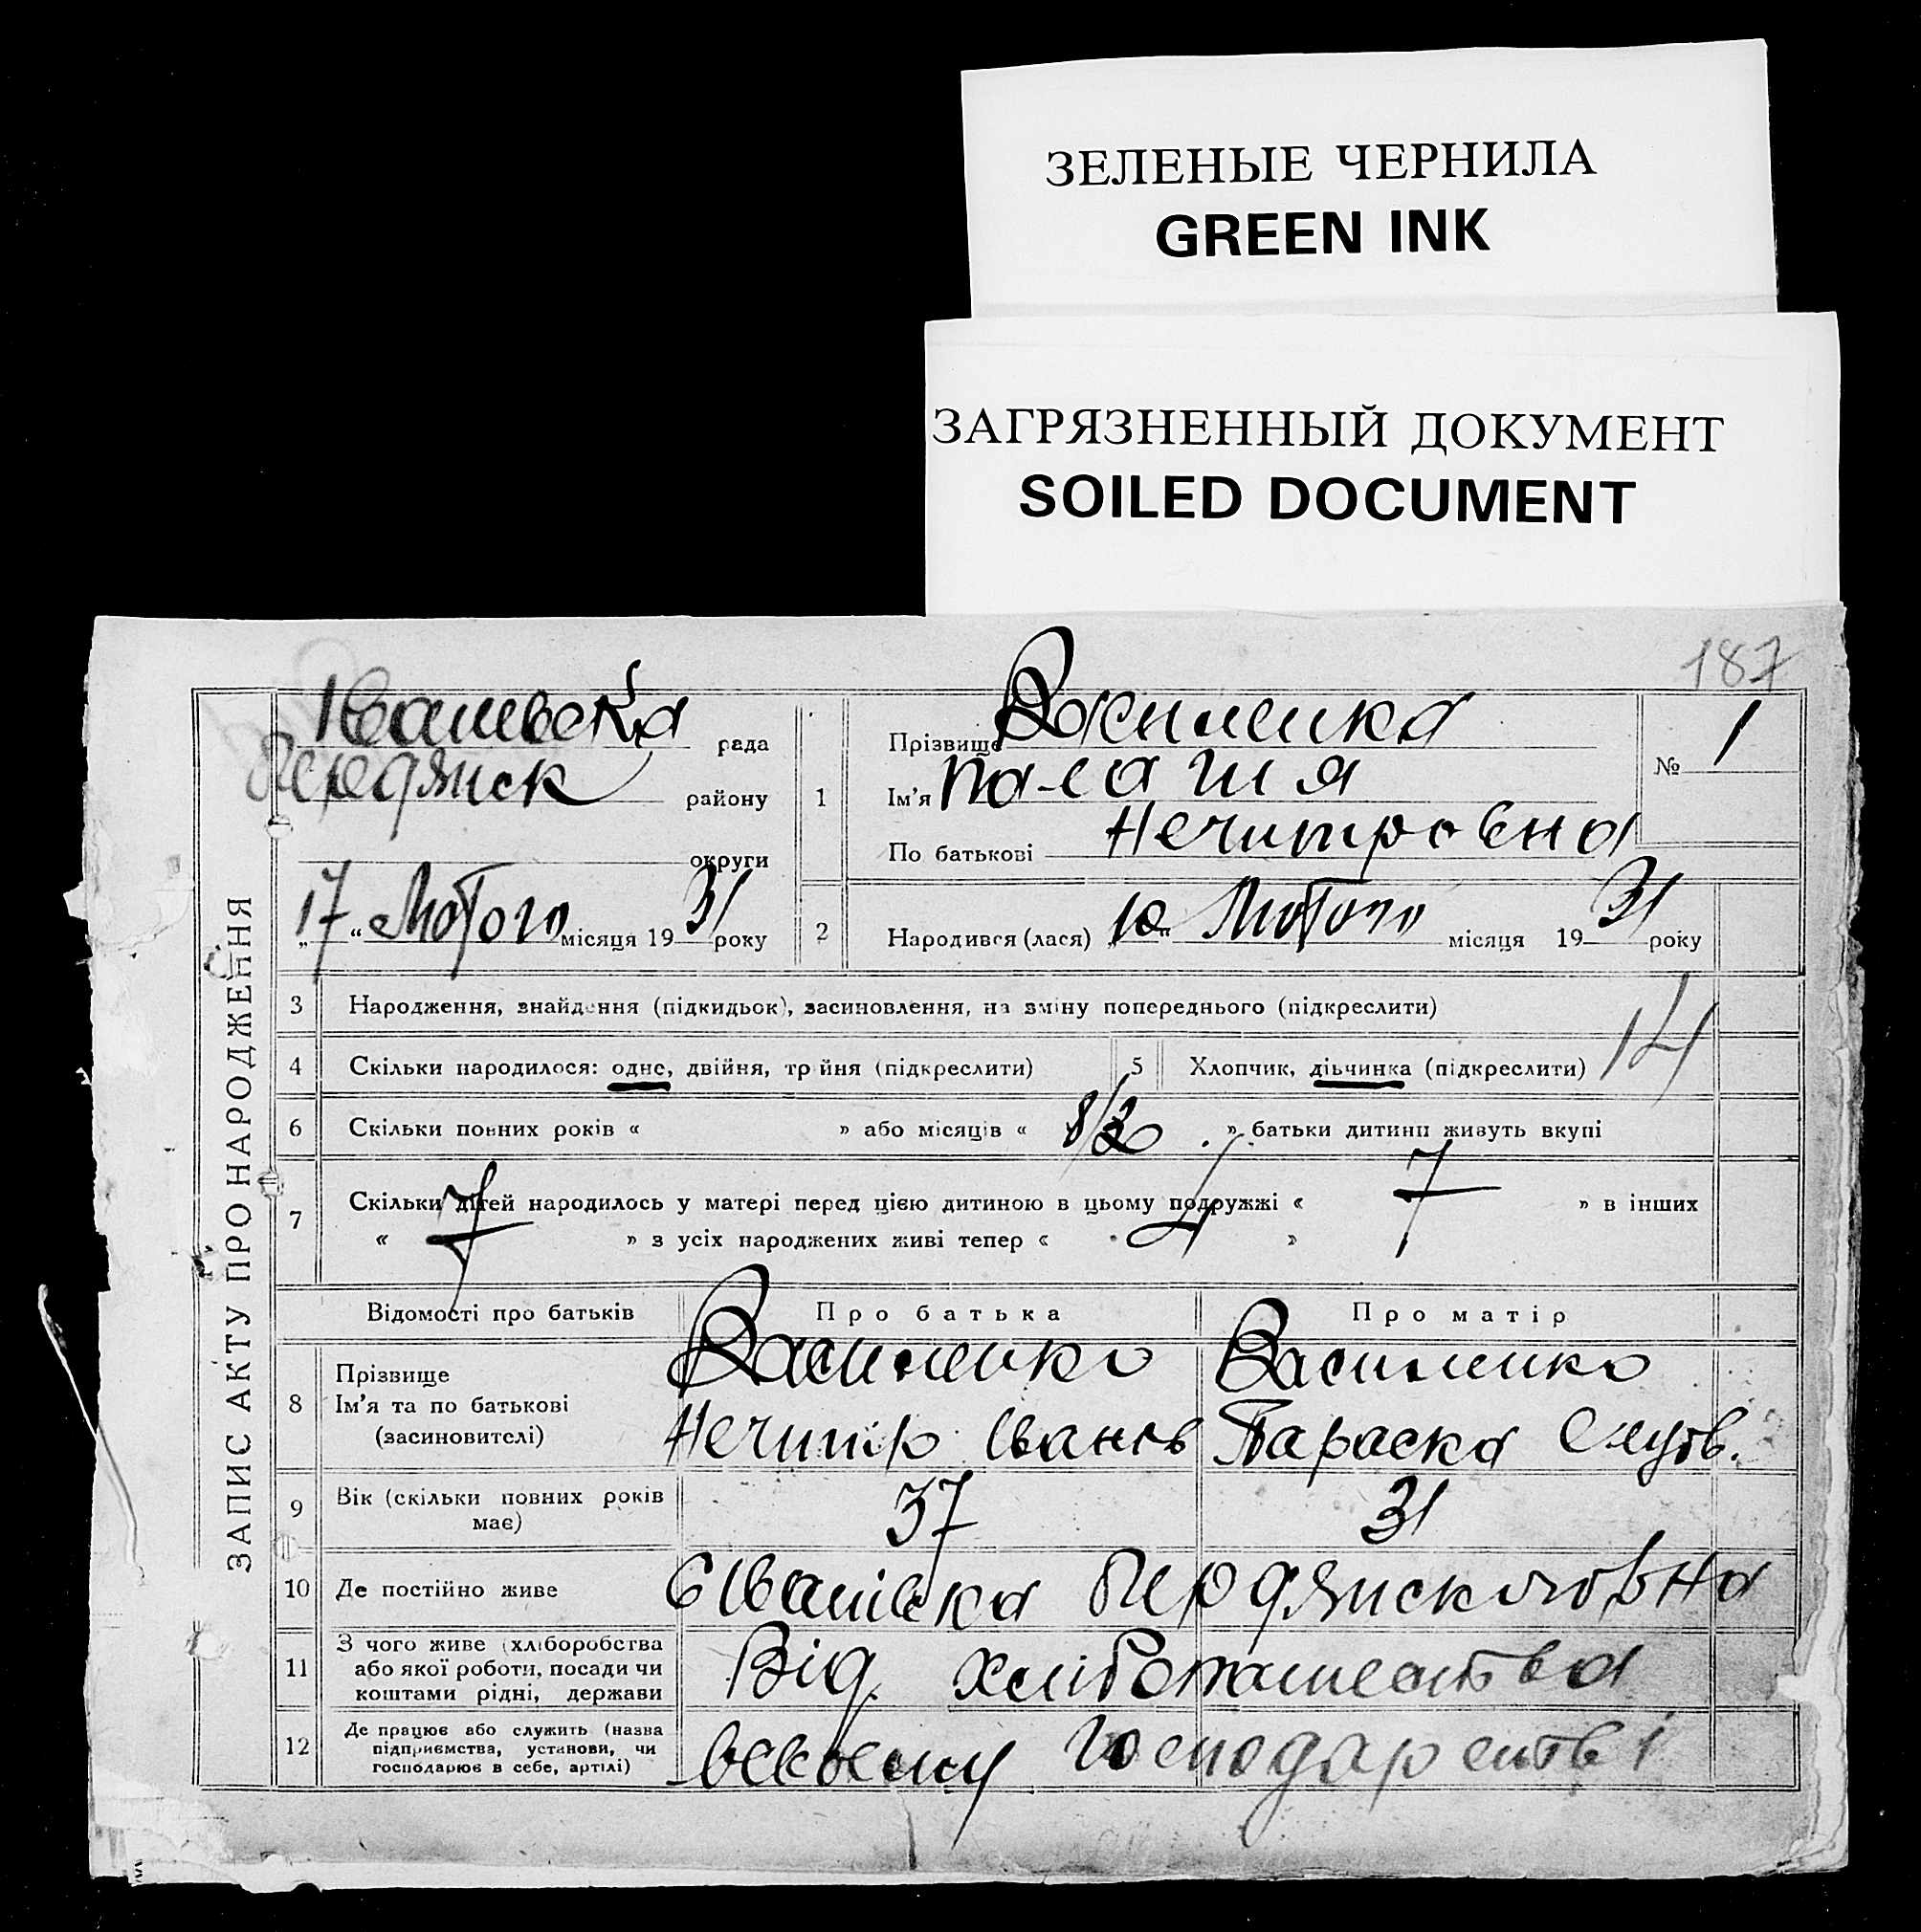 ЗЕЛЕНЫЕ ЧЕРНИЛА
GREEN INK
ЗАГРЯЗНЕННЫЙ ДОКУМЕНТ
SOILED DOCUMENT
187
ЗАПИС АКТУ ПРО НАРОДЖЕННЯ
рада
району
округи
„17“ Лютого місяця 1931 року
1 Прізвище Василенка
Ім'я Палагия
По батькові Нечипровна
№ 1
2 Народився (лася) Лютого місяця 1931 року
3 Народження, знайдення (підкидьок), засиновлення, на зміну попереднього (підкреслити)
14
4 Скільки народилося: одне, двійня, трійня (підкреслити)
5 Хлопчик, дівчинка (підкреслити)
6 Скільки повних років « » або місяців « » батьки дитини живуть вкупі
7 Скільки дітей народилось у матері перед цією дитиною в цьому подружжі « 7 » в інших
« 7 » з усіх народжених живі тепер « 4 »
Відомості про батьків Про батька Про матір
8 Прізвище Василенко Василенко
Ім'я та по батькові Нечипір Іванов Параска
(засиновителі)
9 Вік (скільки повних років має) 37 31
10 Де постійно живе
11 З чого живе (хліборобства
або якої роботи, посади чи
коштами рідні, держави
Від хлібопашества
12 Де працює або служить (назва
підприємства, установи, чи
господарює в себе, артілі)
всвоєму господарстві